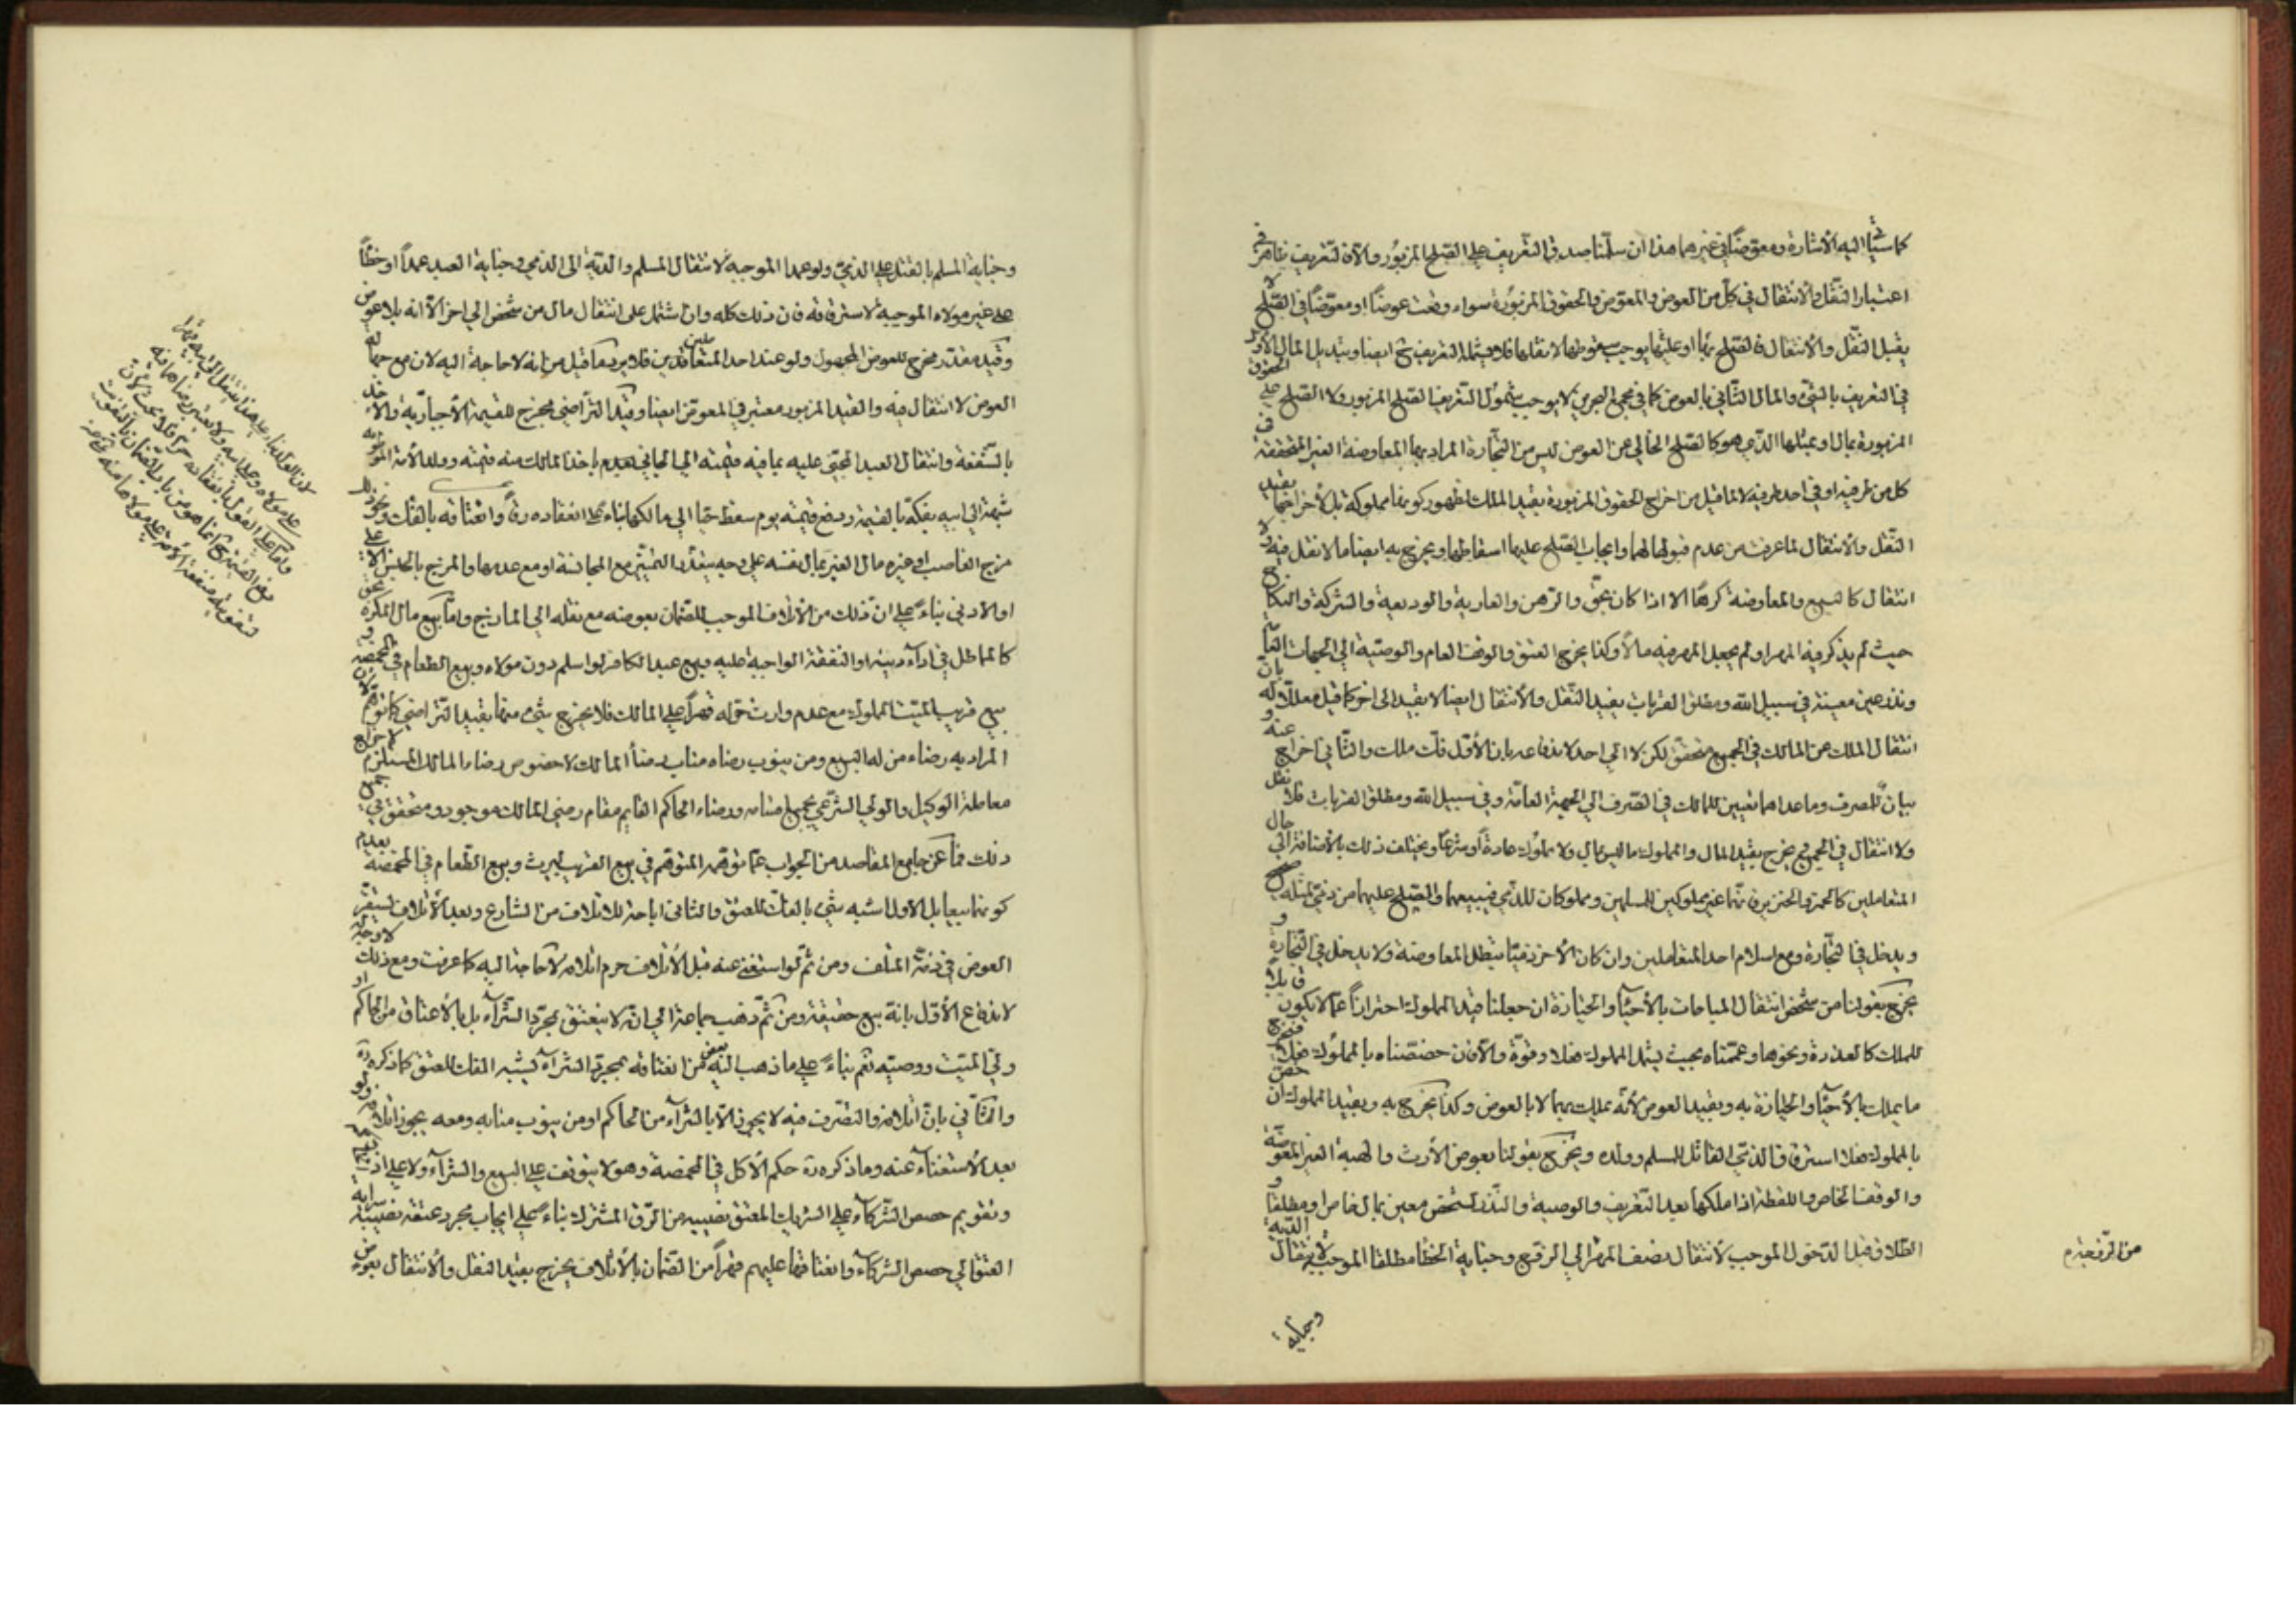 كما سيأتي اليه الاشارة ومعوّضا في غيرهما هذا ان سلّمنا صدق التعريف على الصلح المزبور والا فالتعريف ظاهر في
اعتبار النقل والانتقال في كل من العوض والمعوض والحقوق المزبورة سواء وقعت عوضا او معوّضا في الصلح لا
يقبل النقل والانتقال فالصلح بها او عليها يوجب سقوطها لا نقلها فلا يشمله التعريف ايضا وتبديل المال الاول
في التعريف بالشيء والمال الثاني بالعوض كما في مجمع البحرين لا يوجب شمول التعريف الصلح المزبور ولا الصلح على الحقوق
المزبورة بمال او بمثلها الذي هو كالصلح الخالي عن العوض ليس من التجارة المراد بها المعاوضة الغير المتحققة في
كل من طرفيه او في احد طرفيه لا لما قيل من اخراج الحقوق المزبورة بقيد الملك لظهور كونها مملوكة بل لاخراجها بقيد
النقل والانتقال لما عرفت من عدم قبولها لهما وايجاب الصلح عليها اسقاطها ويخرج به ايضا ما لا نقل فيه ولا
انتقال كالبيع والمعاوضة كرها الا اذا كان بحق والرهن والعارية والوديعة والشركة والنكاح
حيث لم يذكر فيه المهر او لم يجعل المهر فيه مالا وكذا يخرج العتق والوقف العام والوصية الى الجهات العامة
ونذر عين معينة في سبيل الله ومطلق القربات بقيد النقل والانتقال ايضا لا بقيد الى اخر كما قيل معللا له بان
انتقال الملك عن المالك في الجميع متحقق لكن لا الى احد لاندفاعه بان الاول فك ملك والثاني اخراج عنه و
بيان للمصرف وما عداهما تعيين للمالك في الصرف الى الجهة العامة وفي سبيل الله ومطلق القربات فلا نقل
ولا انتقال في الجميع ويخرج بقيد المال والمملوك ما ليس بمال ولا مملوك عادة او شرعا ويختلف ذلك بالاضافة الى حال
المتعاملين كالخمر والخنزير فانهما غير مملوكين للمسلمين ومملوكان للذمي فبيعهما والصلح عليهما من ذمي لمثله صحيح
ويدخل في التجارة ومع اسلام احد المتعاملين وان كان الاخر ذميا يبطل المعاوضة ولا يدخل في التجارة و
يخرج بقولنا من شخص انتقال المباحات بالاحياء والحيازة ان جعلنا قيد المملوك احترازا عما لا يكون قابلا
للملك كالعذرة ونحوها وعممناه بحيث يشمل المملوك فعلا وقوة والا فان خصصناه بالمملوك فعلا فيخرج
ما يملك بالاحياء والحيازة به وبقيد العوض لانه يملك بهما لا بالعوض وكذا يخرج به وبقيد المملوك ان خص
بالمملوك فعلا استرقاق الذمي القاتل للمسلم وولده ويخرج بقولنا بعوض الارث والهبة الغير المعوضة
والوقف الخاص واللقطة اذا ملكها بعد التعريف والوصية والنذر لشخص معين بمال خاص او مطلقا و
الطلاق قبل الدخول الموجب لانتقال نصف المهر الى الزوج وجناية الخطأ مطلقا الموجبة لانتقال الدية
وجناية
وجناية المسلم بالقتل على الذمي ولو عمدا الموجبة لانتقال المسلم والدية الى الذمي وجناية العبد عمدا او خطأ
على غير مولاه الموجبة لاسترقاقه فان ذلك كله وان اشتمل على انتقال مال من شخص الى اخر الا انه بلا عوض
وقيد مقدر مخرج للعوض المجهول ولو عند احد المتعاقدين فلا يرد ما قيل من انه لا حاجة اليه لان مع جهالة
العوض لا انتقال فيه والقيد المزبور معتبر في المعوض ايضا وقيد التراضي مخرج للقيمة الاجبارية والاخذ
بالشفعة وانتقال العبد المجني عليه بما فيه قيمته الى الجاني بعد اخذ المالك منه قيمته وولد الامة
شبهة الى ابيه بفكه بالقيمة ودفع قيمته يوم سقط حيا الى مالكها بناء على انعقاده رقا وانعتاقه بالفك وكذا
مزج الغاصب او غيره مال الغير بمال نفسه على وجه يتعذر التميز مع المجانسة او مع عدمها والمزج بالجنس الاعلى
او الادنى بناء على ان ذلك من الاتلاف الموجب للضمان بعوضه مع نقله الى المازج واما بيع مال المكره بحق
كالمماطل في اداء دينه او النفقة الواجبة عليه وبيع عبد الكافر لو اسلم دون مولاه وبيع الطعام في المخمصة و
بيع قريب الميت المملوك مع عدم وارث حر له قهرا على المالك فلا يخرج شيء منها بقيد التراضي كما توهم لان
المراد به رضاء من له البيع ومن ينوب رضاه مناب رضا المالك لا خصوص رضاء المالك المستلزم لاخراج
معاملة الوكيل والولي الشرعي جميعا منه ورضاء الحاكم القايم مقام رضى المالك موجود ومتحقق في جميع
ذلك فما عن جامع المقاصد من الجواب عما توهمه المتوهم في بيع القريب ليرث وبيع الطعام في المخمصة بعدم
كونهما بيعا بل الاول شبيه شيء بالفك للعتق والثاني اباحة للاتلاف من الشارع وبعد الاتلاف يستقر
العوض في ذمة المتلف ومن ثم لو استغنى عنه قبل الاتلاف حرم اتلافه لا حاجة اليه كما عرفت ومع ذلك لا وجه له
لاندفاع الاول بانه بيع حقيقة ومن ثم ذهب جماعة الى انه لا ينعتق بمجرد الشراء بل بالاعتاق من الحاكم او
ولي الميت ووصيه نعم بناء على ما ذهب اليه بعض من انعتاقه بمجرد الشراء يشبه الفك للعتق كما ذكره ره
والثاني بان اتلافه والتصرف فيه لا يجوز الا بالشراء من الحاكم او من ينوب منابه ومعه يجوز اتلافه ولو
بعد الاستغناء عنه وما ذكره ره حكم الاكل في المخمصة وهو لا يتوقف على البيع والشراء ولا على اذن
وتقويم حصص الشركاء على الشريك المعتق نصيبه من الرق المشترك بناء على ايجاب مجرد عتقه نصيبه سراية
العتق الى حصص الشركاء وانعتاقها عليهم قهرا من الضمان بالاتلاف يخرج بقيد النقل والانتقال بعوض